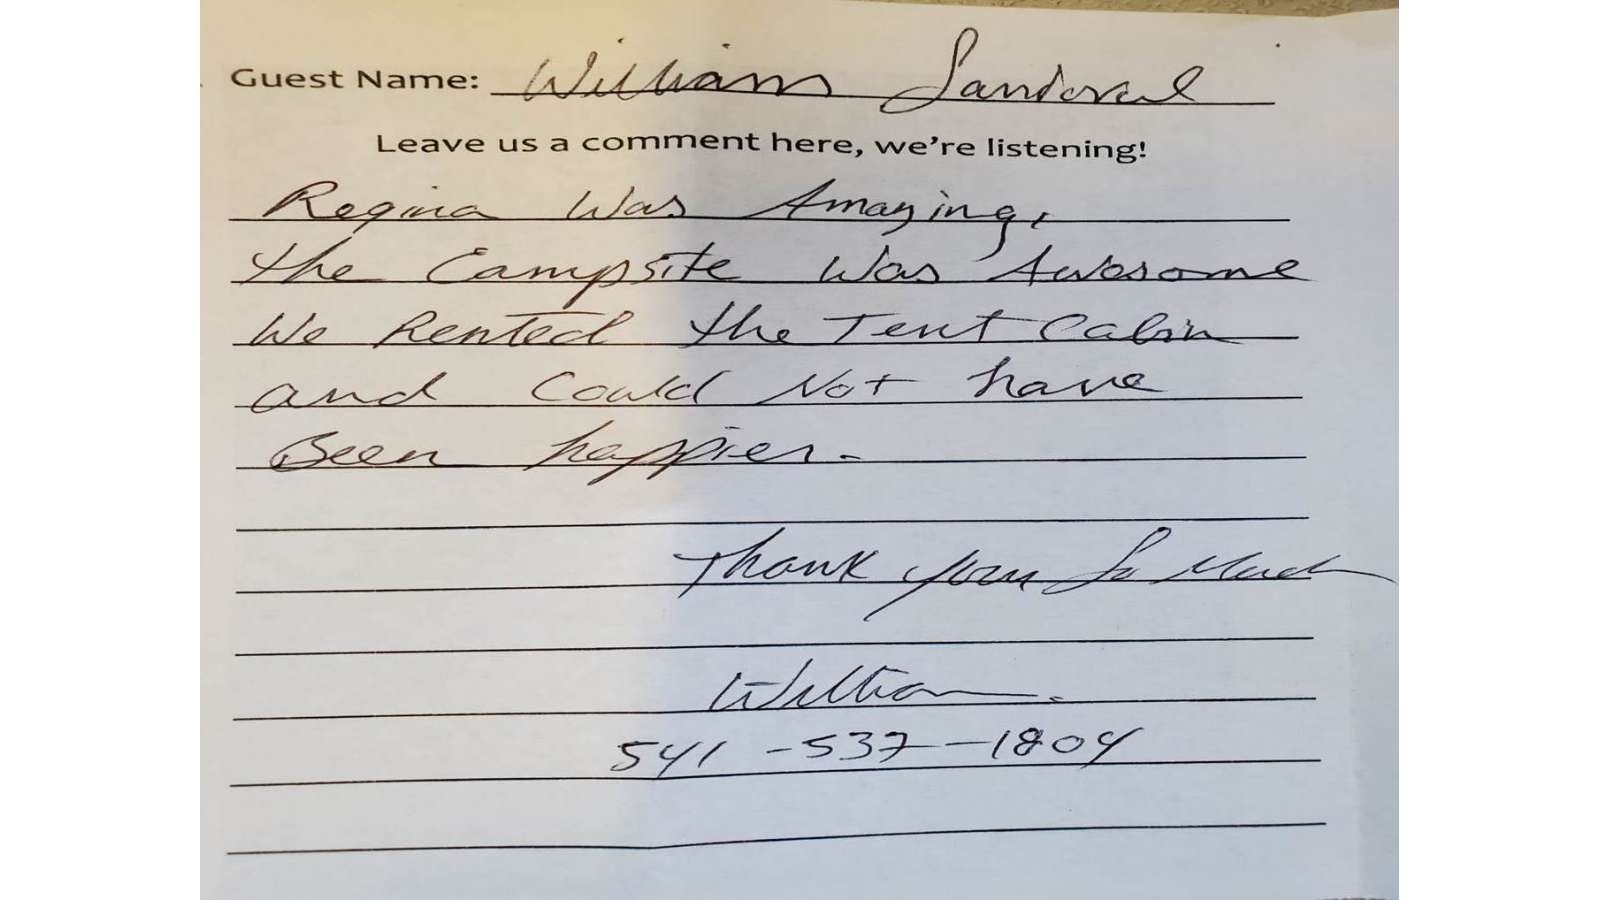 Guest Name: William Sandoval
Leave us a comment here, we're listening!
Regina Was Amazing,
the Campsite Was Awesome
We Rented the Tent Cabin
and Could Not have
Been happier.
Thank you So Much
William.
541-537-1804